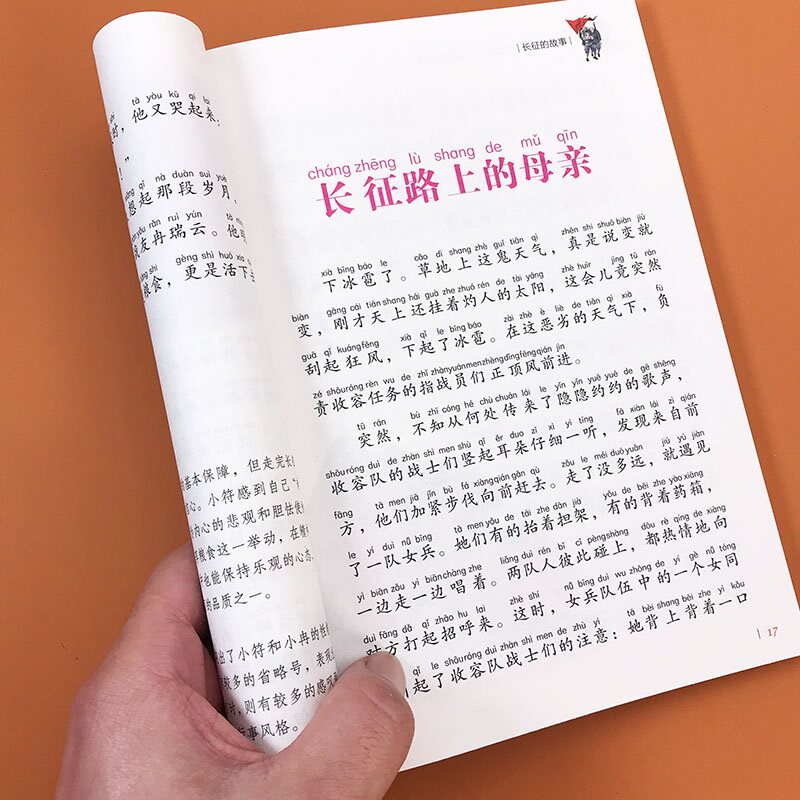 tā yòu kū qǐ lai
他又哭起来:
nà duàn suì yuè
想起那段岁月,
rǎn ruì yún
友冉瑞云。他
gèng shì huó
粮食,更是活下
基本保障,但走完长
心。小符感到自己
内心的悲观和胆怯
粮食这一举动,在
也能保持乐观的心态
的品质之一。
出了小符和小冉的性
较多的省略号,表现
时,则有较多的感叹
行事风格。
长征的故事
cháng zhēng lù shang de mǔ qīn
长征路上的母亲
xià bīng báo le cǎo dì shang zhè guǐ tiān qì zhēn shì shuō biàn jiù
下冰雹了。草地上这鬼天气,真是说变就
biàn gāng cái tiān shang hái guà zhe zhuó rén de tài yáng zhè huìr jìng tū rán
变,刚才天上还挂着灼人的太阳,这会儿竟突然
guā qǐ kuáng fēng xià qǐ le bīng báo zài zhè è liè de tiān qì xià fù
刮起狂风,下起了冰雹。在这恶劣的天气下,负
zé shōu róng rèn wu de zhǐ zhàn yuán men zhèng dǐng fēng qián jìn
责收容任务的指战员们正顶风前进。
tū rán bù zhī cóng hé chù chuán lái le yǐn yǐn yuē yuē de gē shēng
突然,不知从何处传来了隐隐约约的歌声,
shōu róng duì de zhàn shì men shù qǐ ěr duo zǐ xì yì tīng fā xiàn lái zì qián
收容队的战士们竖起耳朵仔细一听,发现来自前
fāng tā men jiā jǐn bù fá xiàng qián gǎn qù zǒu le méi duō yuǎn jiù yù jiàn
方,他们加紧步伐向前赶去。走了没多远,就遇见
le yí duì nǚ bīng tā men yǒu de tái zhe dān jià yǒu de bēi zhe yào xiāng
了一队女兵。她们有的抬着担架,有的背着药箱,
yì biān zǒu yì biān chàng zhe liǎng duì rén bǐ cǐ pèng shàng dōu rè qíng de xiàng
一边走一边唱着。两队人彼此碰上,都热情地向
duì fāng dǎ qǐ zhāo hu lai zhè shí nǚ bīng duì wu zhōng de yí gè nǚ tóng
对方打起招呼来。这时,女兵队伍中的一个女同
qǐ le shōu róng duì zhàn shì men de zhù yì tā bèi shang bēi zhe yì kǒu
起了收容队战士们的注意:她背上背着一口
17